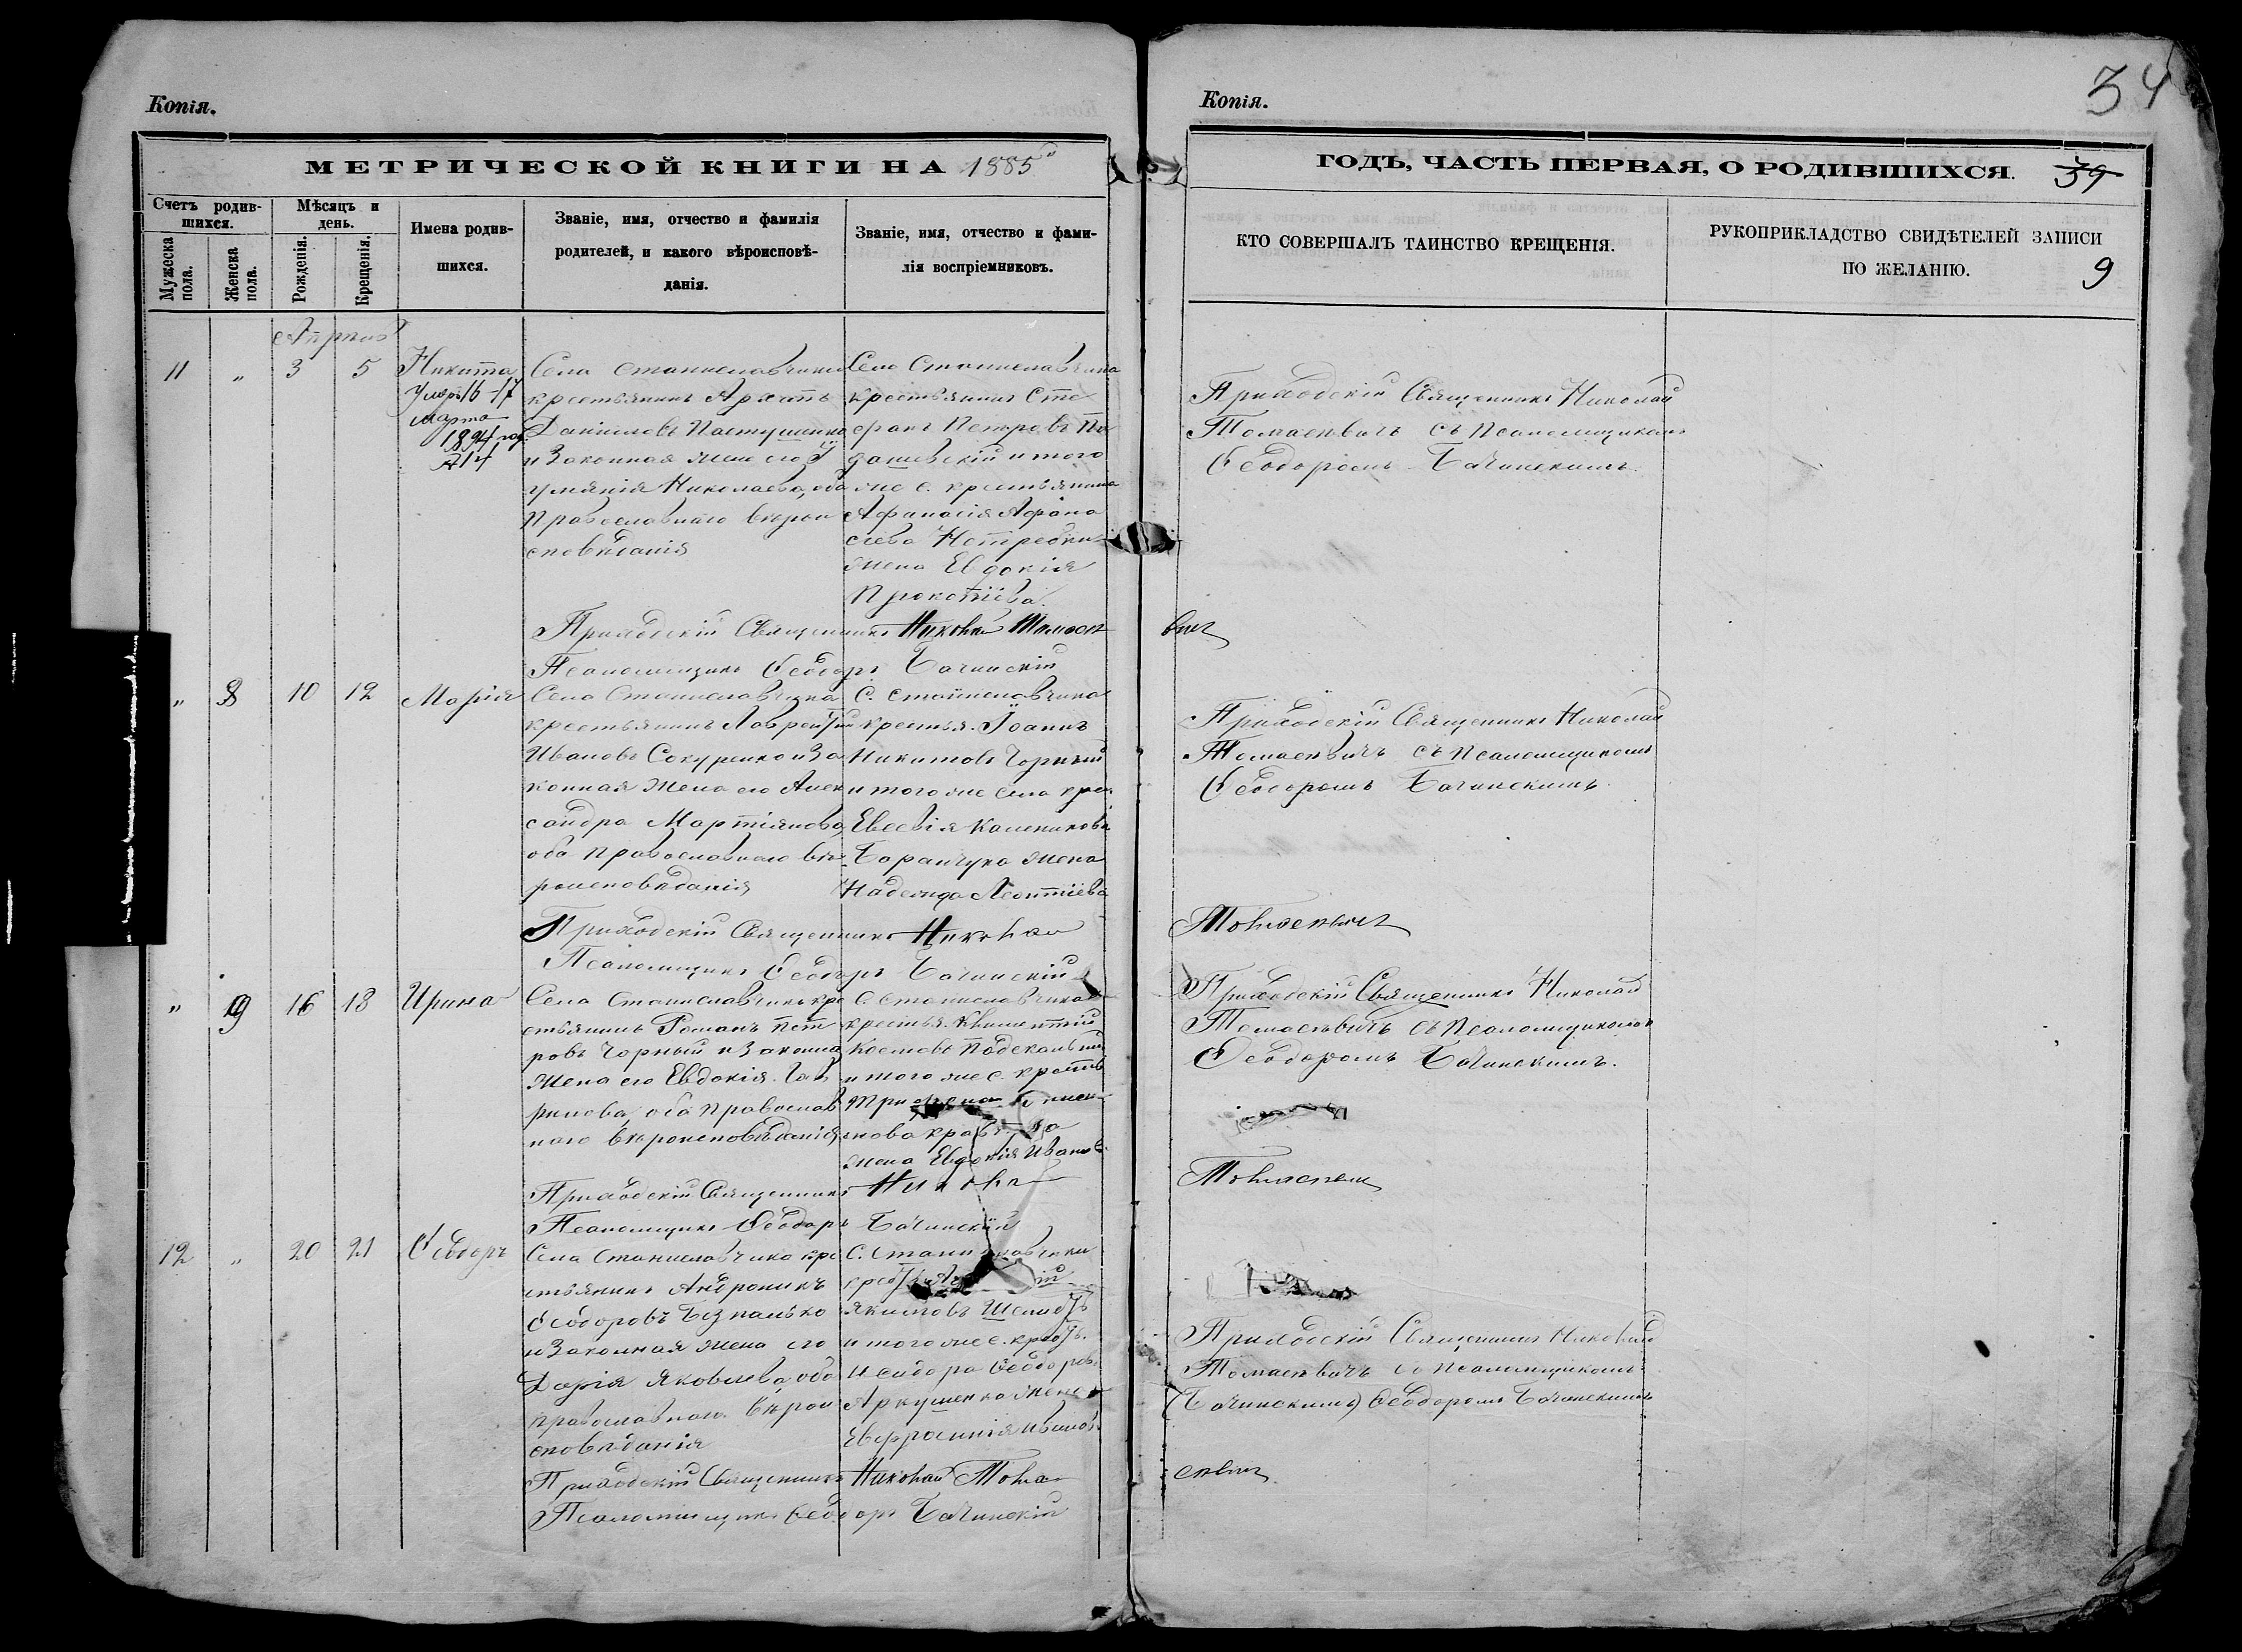 Копія.
МЕТРИЧЕСКОЙ КНИГИ НА 1885
Счетъ родив-
шихся.
Мужеска
пола.
Женска
пола.
Мѣсяцъ и
день.
Рожденія.
Крещенія.
Имена родив-
шихся.
Званіе, имя, отчество и фамилія
родителей, и какого вѣроисповѣ-
данія.
Званіе, имя, отчество и фами-
лія воспріемниковъ.
11
"
3
5
Никита
16-17
Марта
1894
Села Станиславчика
крестьянинъ Архипъ
Даніиловъ Пастушенко
и Законная жена его
Николаева, оба
Православнаго вѣрои
сповѣданія
Села Станиславчика
крестьянинъ Сте
фанъ Петровъ По
дашевскій и того
же с. крестьянина
Афанасія Афана
сіева Нетребки
жена Евдокія
Прокопіева.
Приходскій Священникъ Николай Томасе
Псаломщикъ Ѳеодоръ Бачинскій
"
8
10
12
Марія
Села Станиславчика
крестьянинъ Лаврентій
Ивановъ Сокуренко и За
конная жена его Алек
сандра Мартіянова,
оба Православнаго вѣ
роисповѣданія
С. Станиславчика
крестья. Іоаннъ
Никитовъ Чорный
и того же села кре.
Евсевія Каленикова
Баранчука жена
Надежда Леонтіева
Приходскій Священникъ Николай
Псаломщикъ Ѳеодоръ Бачинскій
"
9
16
18
Ирина
Села Станиславчика кре
стьянинъ Романъ Пет
ровъ Чорный и Законна
жена его Евдокія Гав
рилова, оба Православ
наго вѣроисповѣданія
С. Станиславчика
крестья. Климентій
и того же с. крест
жена Евдокія Иванов.
Приходскій Священникъ Николай
Псаломщикъ Ѳеодоръ Бачинскій
12
"
20
21
Ѳеодоръ
Села Станиславчика кре
стьянинъ Андроникъ
Ѳеодоровъ Безпалько
и Законная жена его
Дарія Яковлева, оба
православнаго вѣрои
сповѣданія
С. Станиславчика
Якимовъ
и того же с.
Исидора Ѳеодоров.
Аркушенка жена
Евфросинія Иванов.
Приходскій Священникъ Николай Тома
Псаломщикъ Ѳеодоръ Бачинскій
Копія.
34
ГОДЪ, ЧАСТЬ ПЕРВАЯ, О РОДИВШИХСЯ.
39
КТО СОВЕРШАЛЪ ТАИНСТВО КРЕЩЕНІЯ.
РУКОПРИКЛАДСТВО СВИДѢТЕЛЕЙ ЗАПИСИ
ПО ЖЕЛАНІЮ.
9
Приходскій Священникъ Николай
Томасевичъ съ Псаломщикомъ
Ѳеодоромъ Бачинскимъ.
вичъ
Приходскій Священникъ Николай
Томасевичъ съ Псаломщикомъ
Ѳеодоромъ Бачинскимъ.
Томасевичъ
Приходскій Священникъ Николай
Томасевичъ съ Псаломщикомъ
Ѳеодоромъ Бачинскимъ.
Томасевич
Приходскій Священникъ Николай
Томасевичъ съ Псаломщикомъ
(Бачинскимъ) Ѳеодоромъ Бачинскимъ
севич